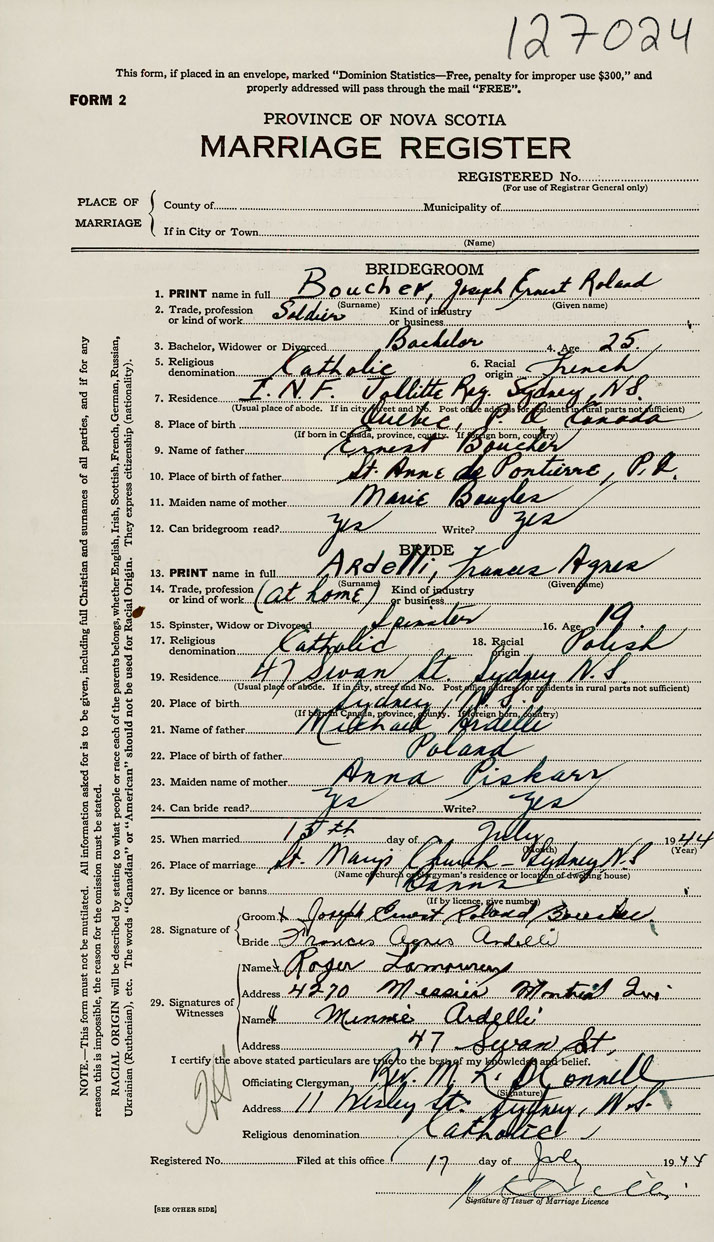 127024
This form, if placed in an envelope, marked "Dominion Statistics—Free, penalty for improper use $300," and
properly addressed will pass through the mail "FREE".
FORM 2
PROVINCE OF NOVA SCOTIA
MARRIAGE REGISTER
REGISTERED No.
(For use of Registrar General only)
PLACE OF MARRIAGE
County of Municipality of
If in City or Town
(Name)
BRIDEGROOM
1. PRINT name in full Boucher, Joseph Ernest Roland
(Surname) (Given name)
2. Trade, profession or kind of work Soldier Kind of industry or business
3. Bachelor, Widower or Divorced Bachelor 4. Age 25.
5. Religious denomination Catholic 6. Racial origin French
7. Residence I.N.F. Jollitte Reg. Sydney, N.S.
(Usual place of abode. If in city, street and No. Post office address for residents in rural parts not sufficient)
8. Place of birth Quebec, P.Q. Canada
(If born in Canada, province, county. If foreign born, country)
9. Name of father Ernest Boucher
10. Place of birth of father St. Anne de Pontierre, P.Q.
11. Maiden name of mother Marie Bougles
12. Can bridegroom read? yes Write? yes
BRIDE
13. PRINT name in full Ardelli, Frances Agnes
(Surname) (Given name)
14. Trade, profession or kind of work (at home) Kind of industry or business
15. Spinster, Widow or Divorced Spinster 16. Age 19
17. Religious denomination Catholic 18. Racial origin Polish
19. Residence 47 Swan St. Sydney N.S.
(Usual place of abode. If in city, street and No. Post office address for residents in rural parts not sufficient)
20. Place of birth Sydney, N.S.
(If born in Canada, province, county. If foreign born, country)
21. Name of father Michael Ardelli
22. Place of birth of father Poland
23. Maiden name of mother Anna Piskarr
24. Can bride read? Yes Write? Yes
25. When married 15th day of July 1944
(Month) (Year)
26. Place of marriage St. Mary's Church - Sydney N.S
(Name of church or clergyman's residence or location of dwelling house)
27. By licence or banns Banns
(If by licence, give number)
28. Signature of Groom x Joseph Ernest Roland Boucher
Bride Frances Agnes Ardelli
29. Signatures of Witnesses
Name Roger Lamoureux
Address 4270 Messier Montreal Que
Name Minnie Ardelli
Address 47 Swan St,
I certify the above stated particulars are true to the best of my knowledge and belief.
Officiating Clergyman Rev. M. L. O'Connell
(Signature)
Address 11 Wesley St. Sydney, N.S.
Religious denomination Catholic
Registered No. Filed at this office 17 day of July 1944
Signature of Issuer of Marriage Licence
[SEE OTHER SIDE]
NOTE.—This form must not be mutilated. All information asked for is to be given, including full Christian and surnames of all parties, and if for any
reason this is impossible, the reason for the omission must be stated.
RACIAL ORIGIN will be described by stating to what people or race each of the parents belongs, whether English, Irish, Scottish, French, German, Russian,
Ukrainian (Ruthenian), etc. The words "Canadian" or "American" should not be used for Racial Origin. They express citizenship (nationality).